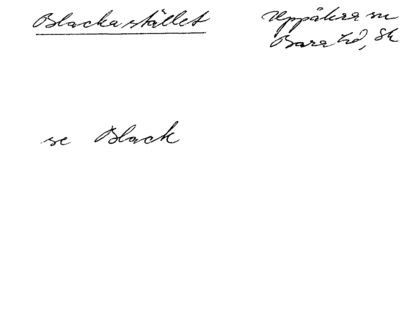 Blackastället
Uppåkra sn
Bara hd, Sk
se Black